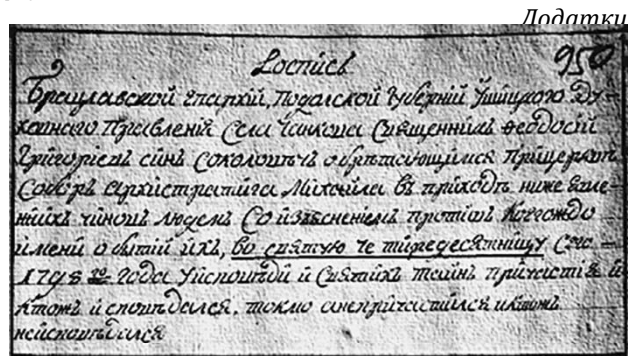 Додатки
Роспись 950
Брацлавской Епархий, Подолской Губерний Ушицкого Ду-
ховнаго Правления Села Чанкова Священникъ Феодосій
Григориевъ синъ Соколовичъ обрѣтающимся прицеркви
Соборъ Архистратига Михайла въ приходѣ ниже явле-
нныхъ чиновъ людемъ Со изяснениемъ противъ Коегождо
имени о бытій ихъ, во святую четиредесятницу Сего
1798 го года Уисповѣди и Святихъ тайнъ причастія и
ктожъ исповѣдался. токмо анепричастился иктожъ
неисповѣдался